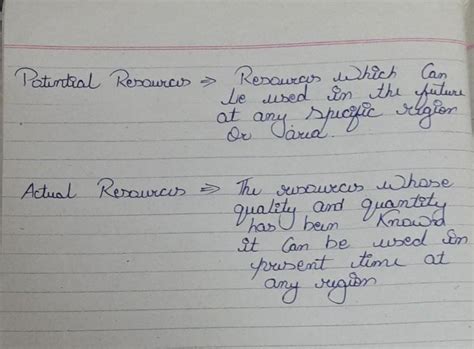 Potential Resources ⇒ Resources which Can
be used in the future
at any specific region
Or area.
Actual Resources ⇒ The resources whose
quality and quantity
has been Knowed
it Can be used in
present time at
any region